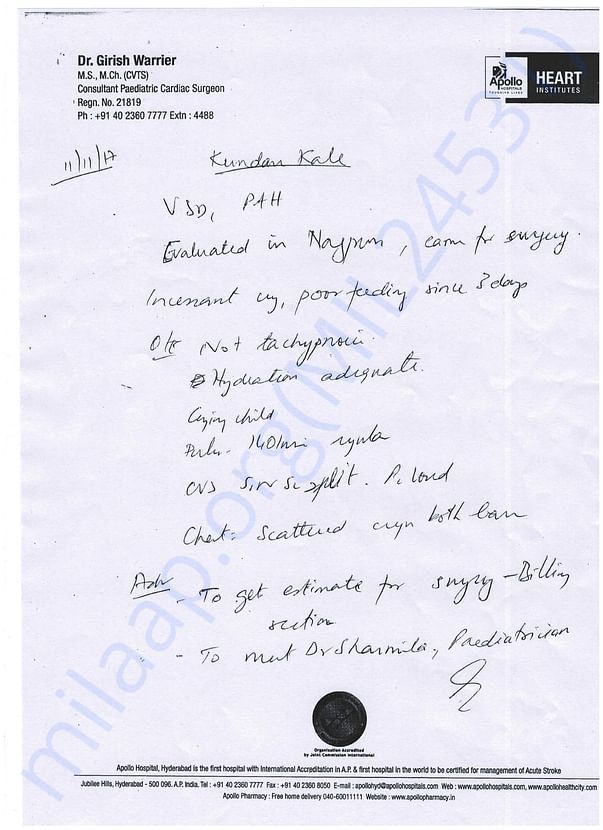 Dr. Girish Warrier
M.S., M.Ch. (CVTS)
Consultant Paediatric Cardiac Surgeon
Regn. No. 21819
Ph : +91 40 2360 7777 Extn : 4488
Apollo
HOSPITALS
TOUCHING LIVES
HEART
INSTITUTES
11/11/17
Kundan Kale
VSD, PAH
Evaluated in Nagpur, came for surgery.
Incessant cry, poor feeding since 3 days
O/E Not tachypnoeic.
Hydration adequate.
Crying child
Pulse - 140/min regular
CVS S1N S2 split. P2 loud
Chest: Scattered both
Adv - To get estimate for surgery - Billing
section
- To meet Dr Sharmila, Paediatrician
Organisation Accredited
by Joint Commission International
Apollo Hospital, Hyderabad is the first hospital with International Accreditation in A.P. & first hospital in the world to be certified for management of Acute Stroke
Jubilee Hills, Hyderabad - 500 096. A.P. India. Tel : +91 40 2360 7777 Fax : +91 40 2360 8050 E-mail : apollohyd@apollohospitals.com Web : www.apollohospitals.com, www.apollohealthcity.com
Apollo Pharmacy : Free home delivery 040-60011111 Website : www.apollopharmacy.in